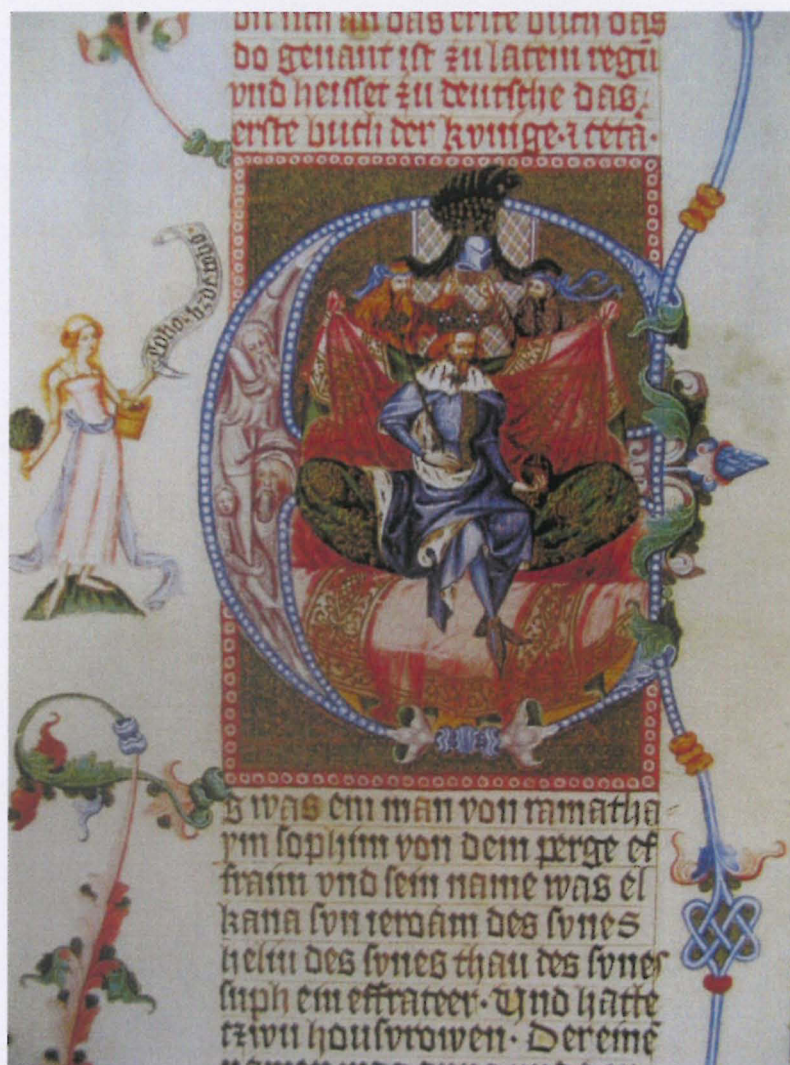 dit ich an das erste buch das
do genant ist zu latein regū
vnd heisset zu deutsche das
erste buch der kvnige · ⁊ cetā ·
E
s was ein man von ramatha⸗
ym sophim von dem perge ef
fraim vnd sein name was el
kana svn ieroam des svnes
heliu des svnes thau des svnes
suph ein effrateer · Und hatte
tzwu housvrowen · Der eine